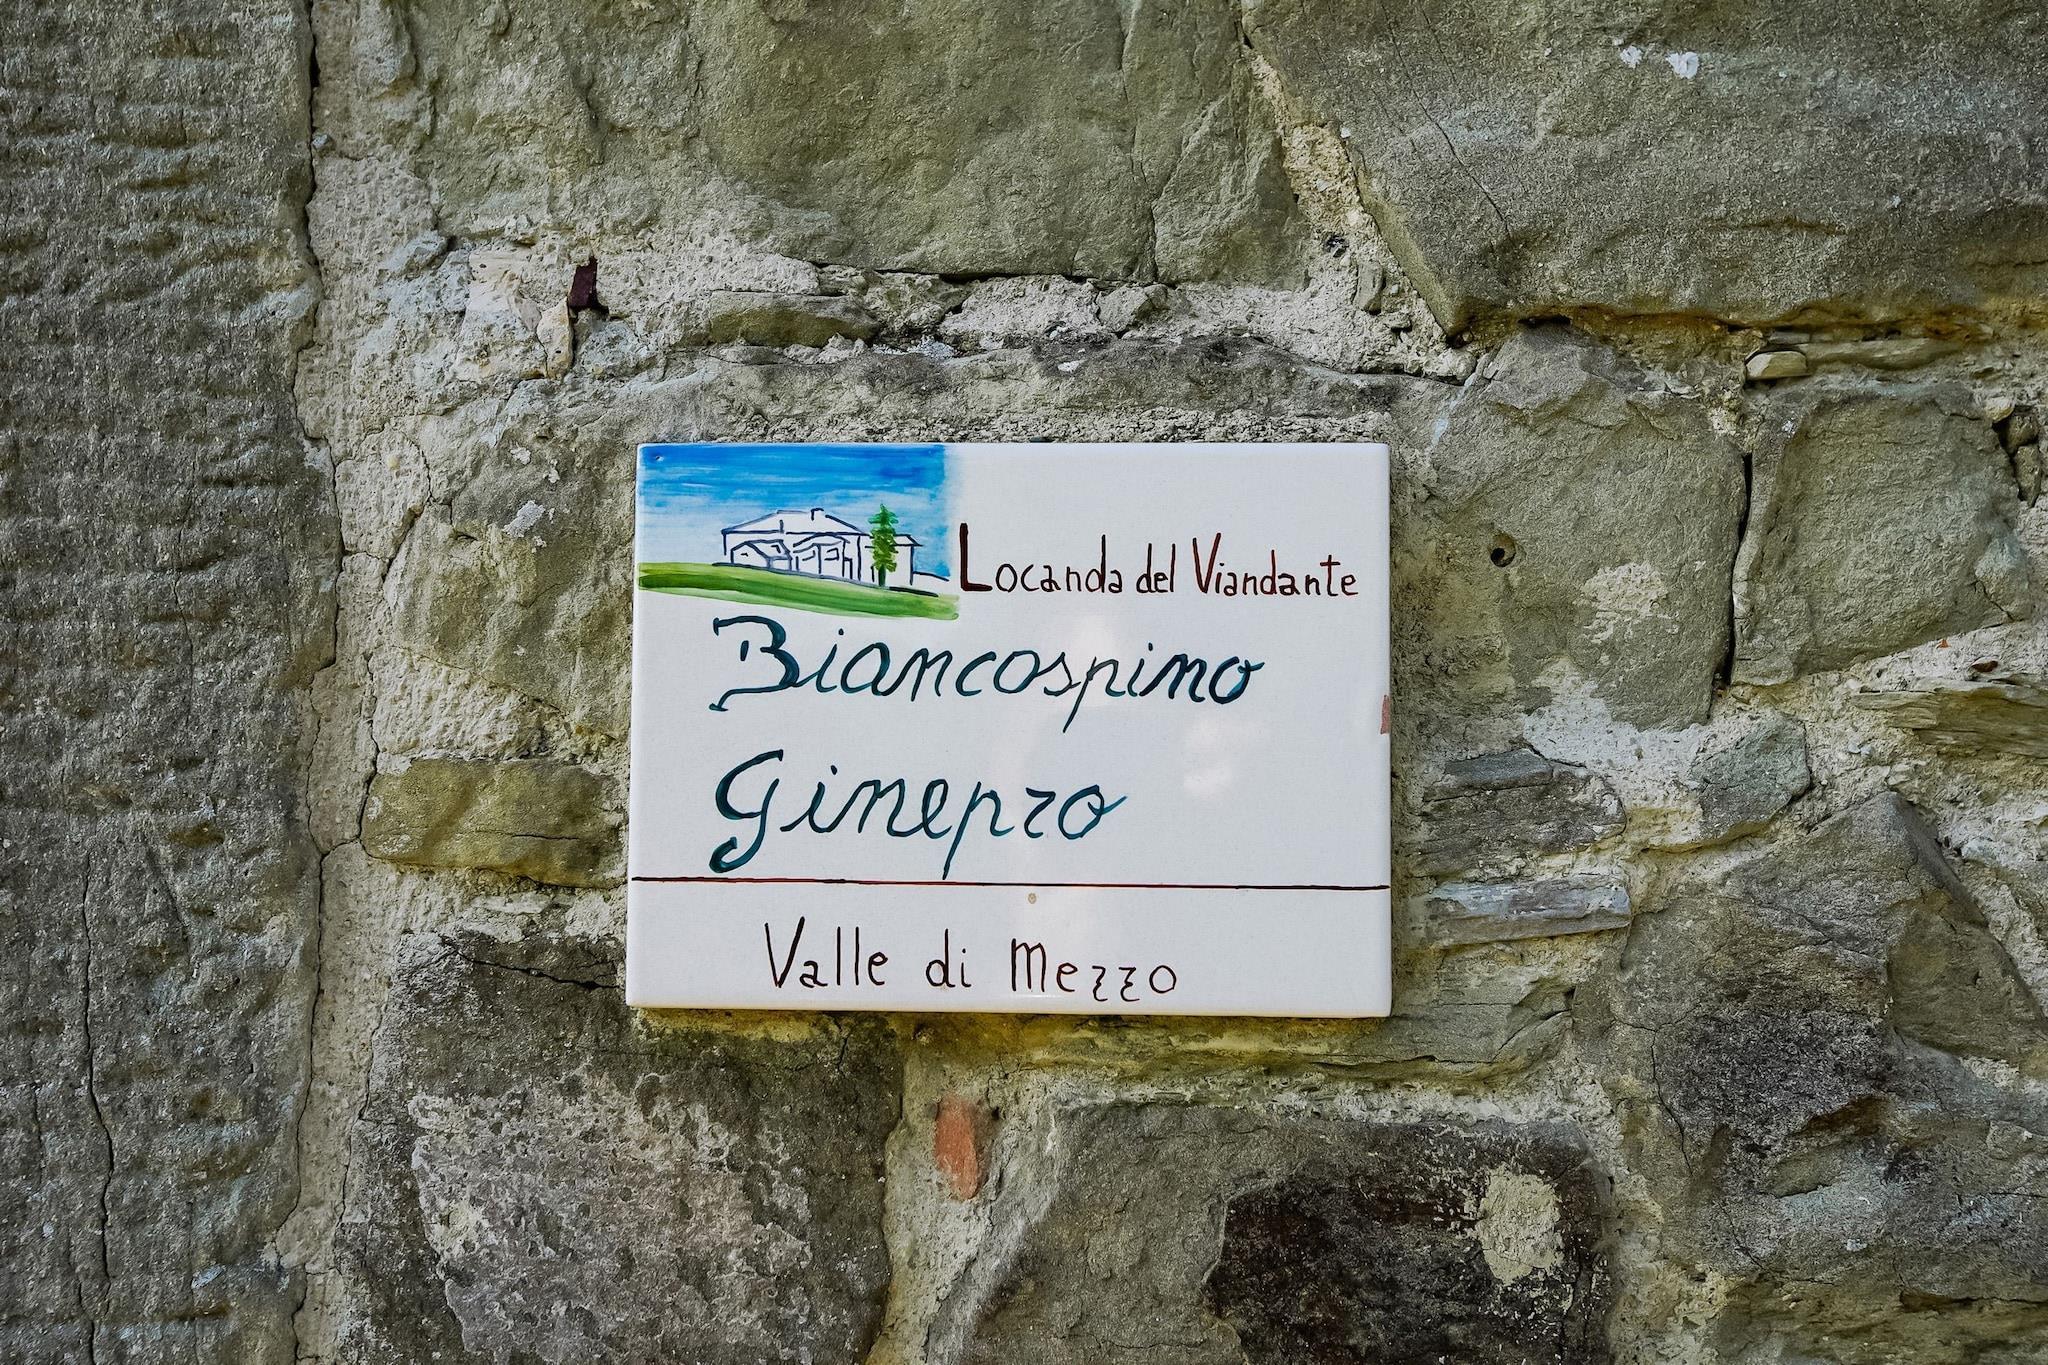 Locanda del Viandante
Biancospino
Ginepro
Valle di Mezzo